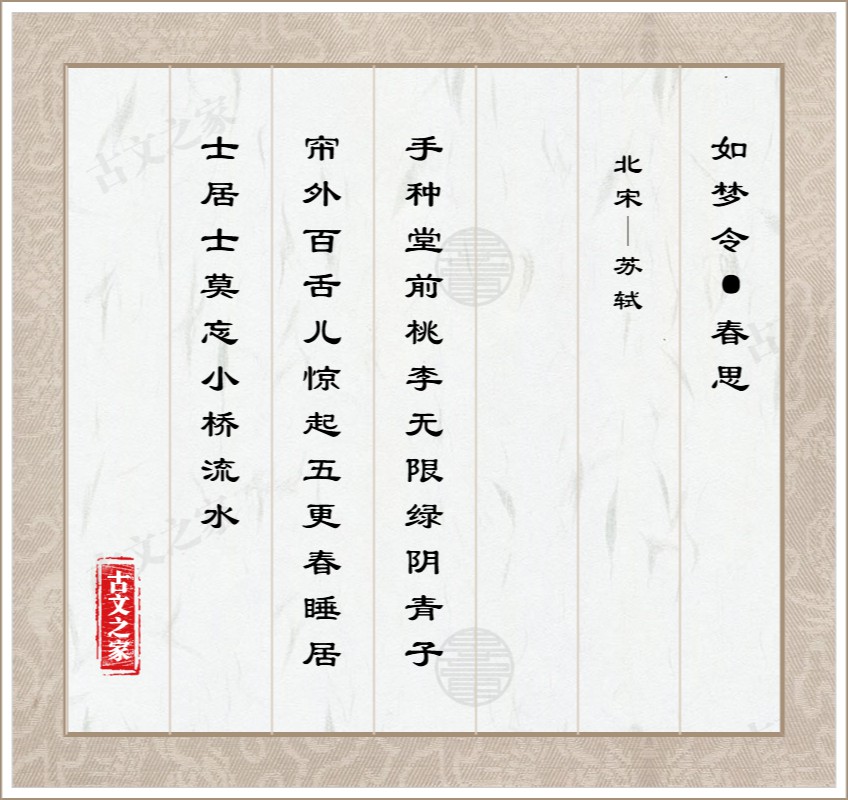 如梦令●春思
北宋—苏轼
手种堂前桃李无限绿阴青子
帘外百舌儿惊起五更春睡居
士居士莫忘小桥流水
古文之家
古文之家
古文之家